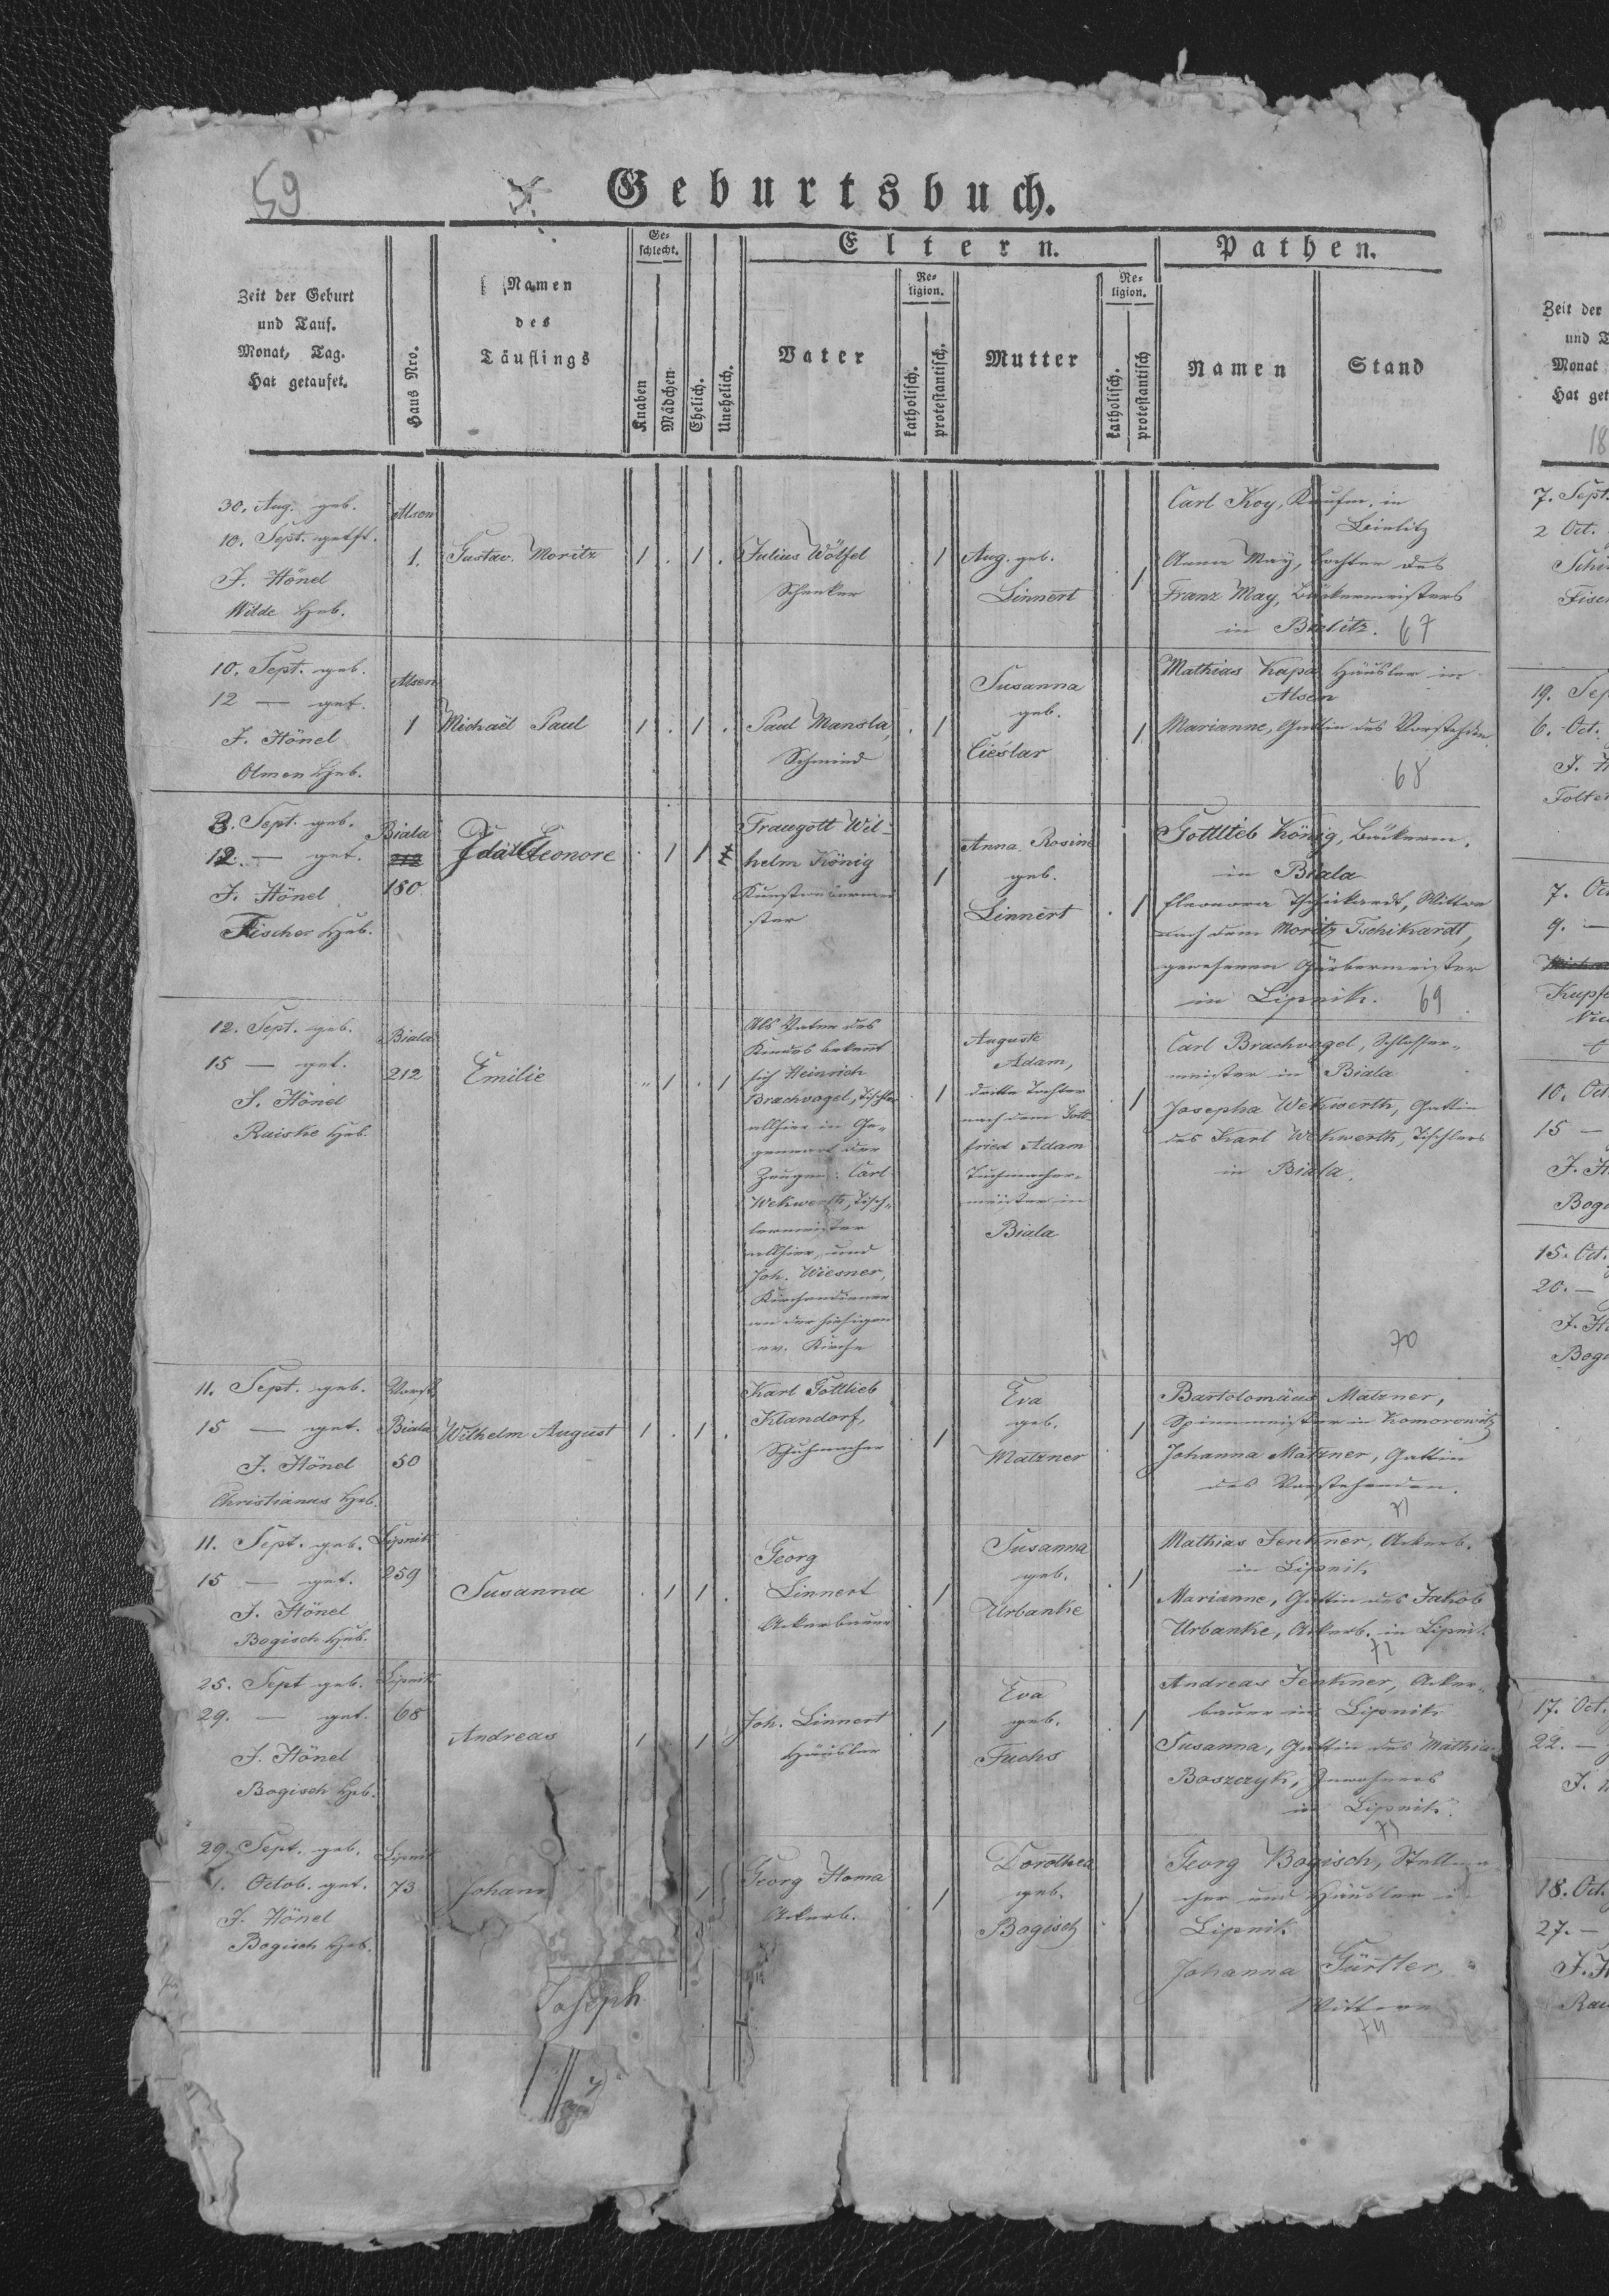 59
Geburtsbuch.
Zeit der Geburt
und Tauf.
Monat, Tag.
Hat getaufet.
Haus Nro.
Namen
des
Täuflings
Ge-
schlecht.
Knaben
Mädchen
Ehelich.
Unehelich.
Eltern.
Vater
Re-
ligion.
katholisch.
protestantisch.
Mutter
Re-
ligion.
katholisch.
protestantisch
Pathen.
Namen
Stand
30. Aug. geb.
10. Sept. getft.
J. Hönel
Wilde Heb.
Alsen
1.
Gustav. Moritz
1 . 1 .
Julius Wölfel
Schenker
. 1
Aug. geb.
Linnert
. 1
Carl Koy, Kaufm. in
Bielitz
Anna May, Tochter des
Franz May, Bäckermeisters
in Bielitz. 67
10. Sept. geb.
12 — get.
J. Hönel
Olmen Heb.
Alsen
1
Michael Paul
1 . 1 .
Paul Mansla,
Schmied
. 1
Susanna
geb.
Cieslar
1
Mathias Kapa Häusler in
Alsen
Marianne, Gattin des Vorstehden.
68
3. Sept. geb.
12. — get.
J. Hönel
Fischer Heb.
Biala
212
180
Ida Eleonore
. 1 1
Traugott Wil-
helm König
1
Anna Rosine
geb.
Linnert
. 1
Gottlieb König, Bäckerm.
in Biala
Eleonora Tschikardt, Wittwe
nach dem Moritz Tschikardt,
gewesenen Gärbermeister
in Lipnik. 69
12. Sept. geb.
15 — get.
J. Hönel
Raiske Heb.
Biala
212
Emilie
" 1 . 1
Als Vater des
Kindes bekennt
sich Heinrich
Brachvogel, Tischler
allhier in Ge-
genwart der
Zeugen: Carl
Wekwerth, Tisch-
lermeister
allhier, und
Joh. Wiesner,
Kirchendiener
an der hiesigen
ev. Kirche
. 1
Auguste
Adam,
dritte Tochter
nach dem Gott-
fried Adam
Tuchmacher-
meister in
Biala
. 1
Carl Brachvogel, Schlosser-
meister in Biala
Josepha Wekwerth, Gattin
des Karl Wekwerth, Tischlers
in Biala.
70
11. Sept. geb.
15 — get.
J. Hönel
Christianus Heb.
Vorst.
Biala
50
Wilhelm August
1 . 1 .
Karl Gottlieb
Klandorf,
Schuhmacher
. 1
Eva
geb.
Matzner
. 1
Bartolomäus Matzner,
Spinnmeister in Komorowitz
Johanna Matzner, Gattin
des Vorstehenden.
71
11. Sept. geb.
15 — get.
J. Hönel
Bogisch Heb.
Lipnik
259
Susanna
. 1 1 .
Georg
Linnert
Ackerbauer
. 1
Susanna
geb.
Urbanke
. 1
Mathias Jenkner, Ackerb.
in Lipnik
Marianne, Gattin des Jakob
Urbanke, Ackerb. in Lipnik
72
25. Sept geb.
29. — get.
J. Hönel
Bogisch Heb.
Lipnik
68
Andreas
1 1
Joh. Linnert
Häusler
. 1
Eva
geb.
Fuchs
. 1
Andreas Jenkner, Acker-
bauer in Lipnik
Susanna, Gattin des Mathias
Boszczyk, Inwohners
in Lipnik.
29. Sept. geb.
1. Octob. get.
J. Hönel
Bogisch Heb.
Lipnik
73
Johann
1
Georg Homa
Ackerb.
. 1
Dorothea
geb.
Bogisch
. 1
Georg Bogisch, Stellma-
cher und Häusler in
Lipnik
Johanna Gürtler,
Wittwe
74
Joseph
Zeit der
und T
Monat
Hat get
18
7. Sept.
2 Oct.
19. Sep
6. Oct.
J. H
7. Oct
9. —
Kupfe
10. Oct
15 —
J. H
Bogi
15. Oct.
20. —
J. Hö
Bogi
17. Oct.
22. —
J. H
18. Oct.
27. —
J. H
Rai